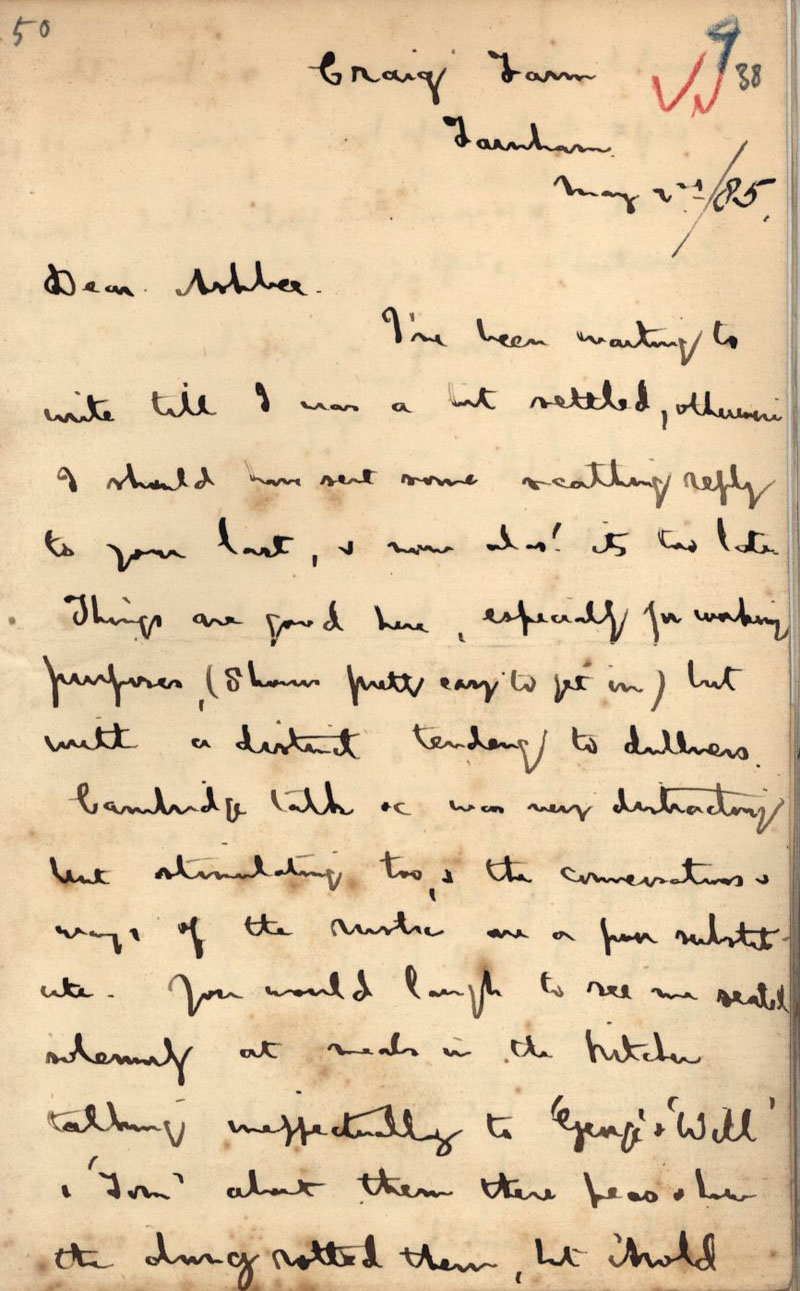 50
9
38
Craig Farm
Farnham.
May 2nd/85.
Dear Ashbee.
I've been waiting to
write till I was a bit settled, otherwise
I should have sent some scathing reply
to your last, & now alas! its too late
Things are good here, especially for working
purposes, (8 hours pretty easy to get in) but
with a distinct tendency to dullness.
Cambridge talk &c was very distracting
but stimulating too, & the conversations &
ways of the rustic are a poor substit-
ute. You would laugh to see me seated
solemnly at meals in the kitchen
talking ineffectually to 'George' & 'Will'
& 'Tom' about them there peas & how
the dung rotted them, but